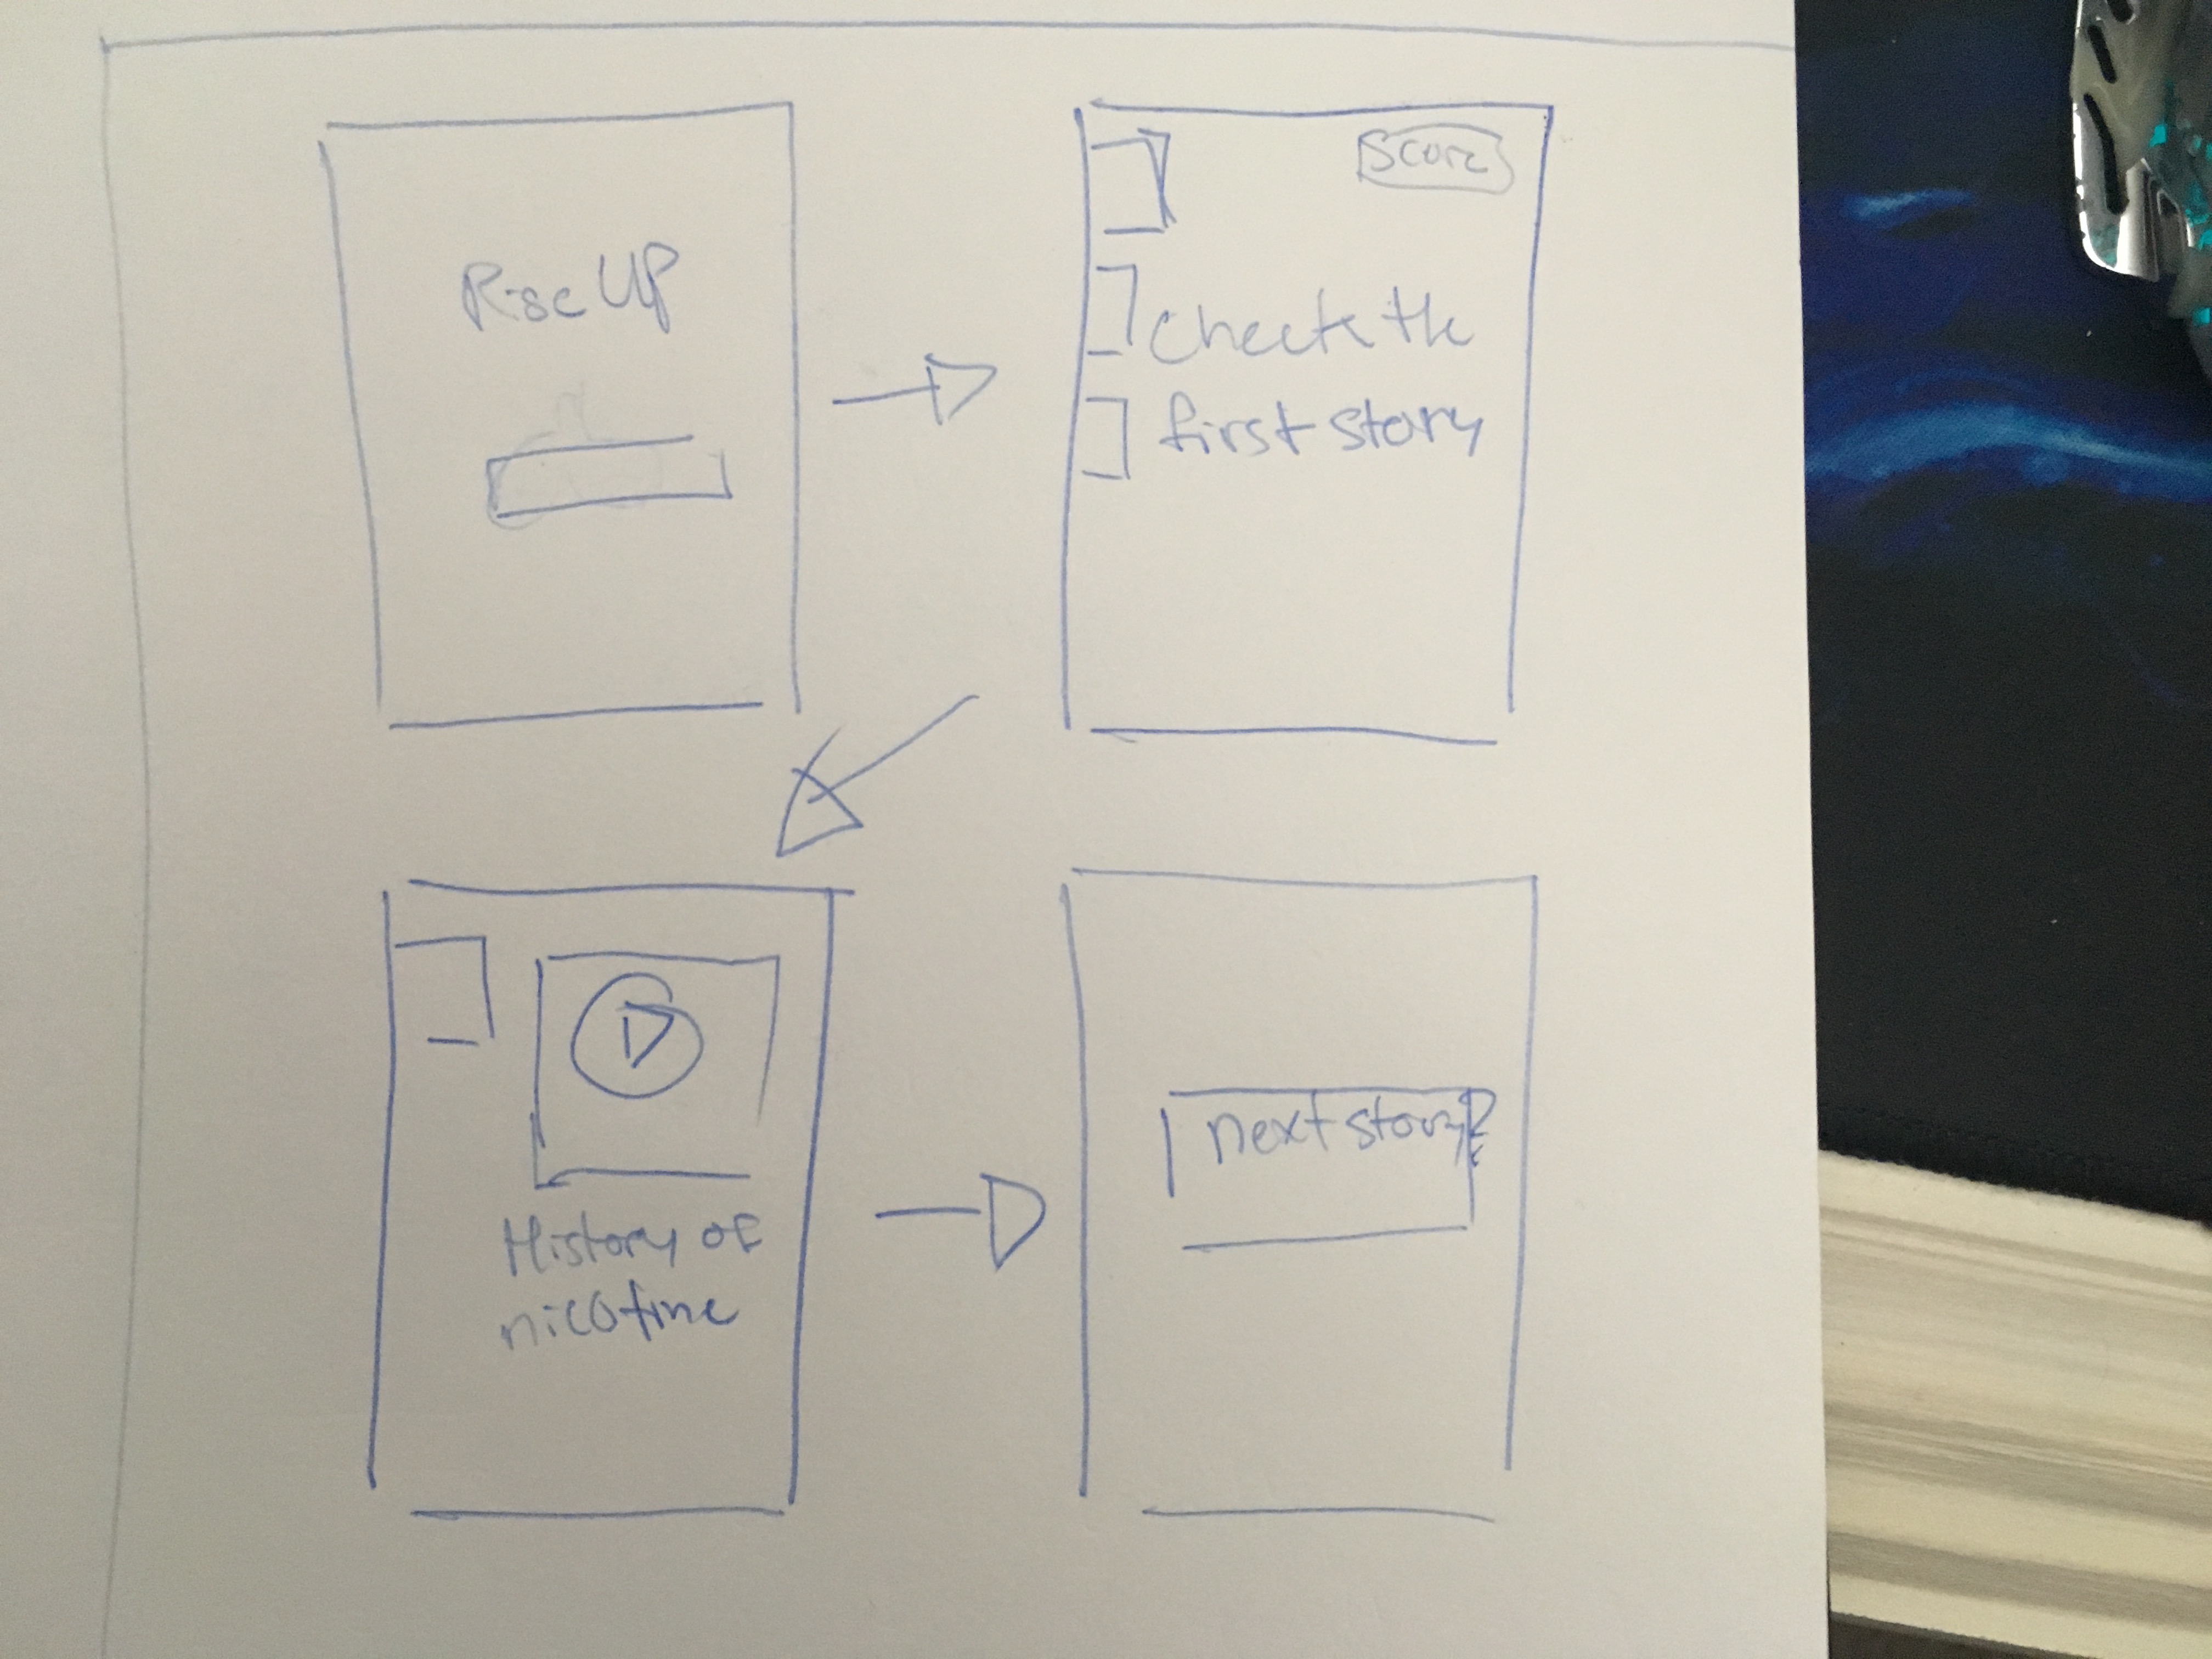 Rise UP
Score
Check the
first story
History of
nicotine
next story?